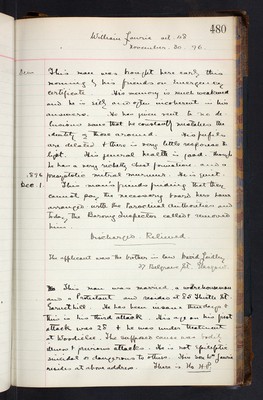 480
William Laurie aet 48
November 30. 96.
This man was brought here early this
morning by his friends on Emergency
Certificate. His memory is much weakened
and he is silly and often incoherent in his
answers. He has given vent to no de-
lusions save that he constantly mistakes the
identity of those around. His pupils
are dilated & there is very little response to
light. His general health is good though
he has a very rickety chest formation and a
presystolic mitral murmur. He is quiet.
1896
Dec. 1. This man's friends finding that they
cannot pay the necessary board here have
arranged with the Parochial Authorities and
today the Barony Inspector called & removed
him.
Discharged Relieved
The applicant was the brother in law David
27 Belgrave St. Glasgow
This man was married, a warehouseman
and a Protestant and resides at 25 St.
Garnethill. He has been insane three days &
this is his third attack. His age on his first
attack was 28 & he was under treatment
at Woodilee. The supposed cause was
& previous attacks. He is not epileptic
suicidal or dangerous to others. His
resides at above address. There is No H.P.